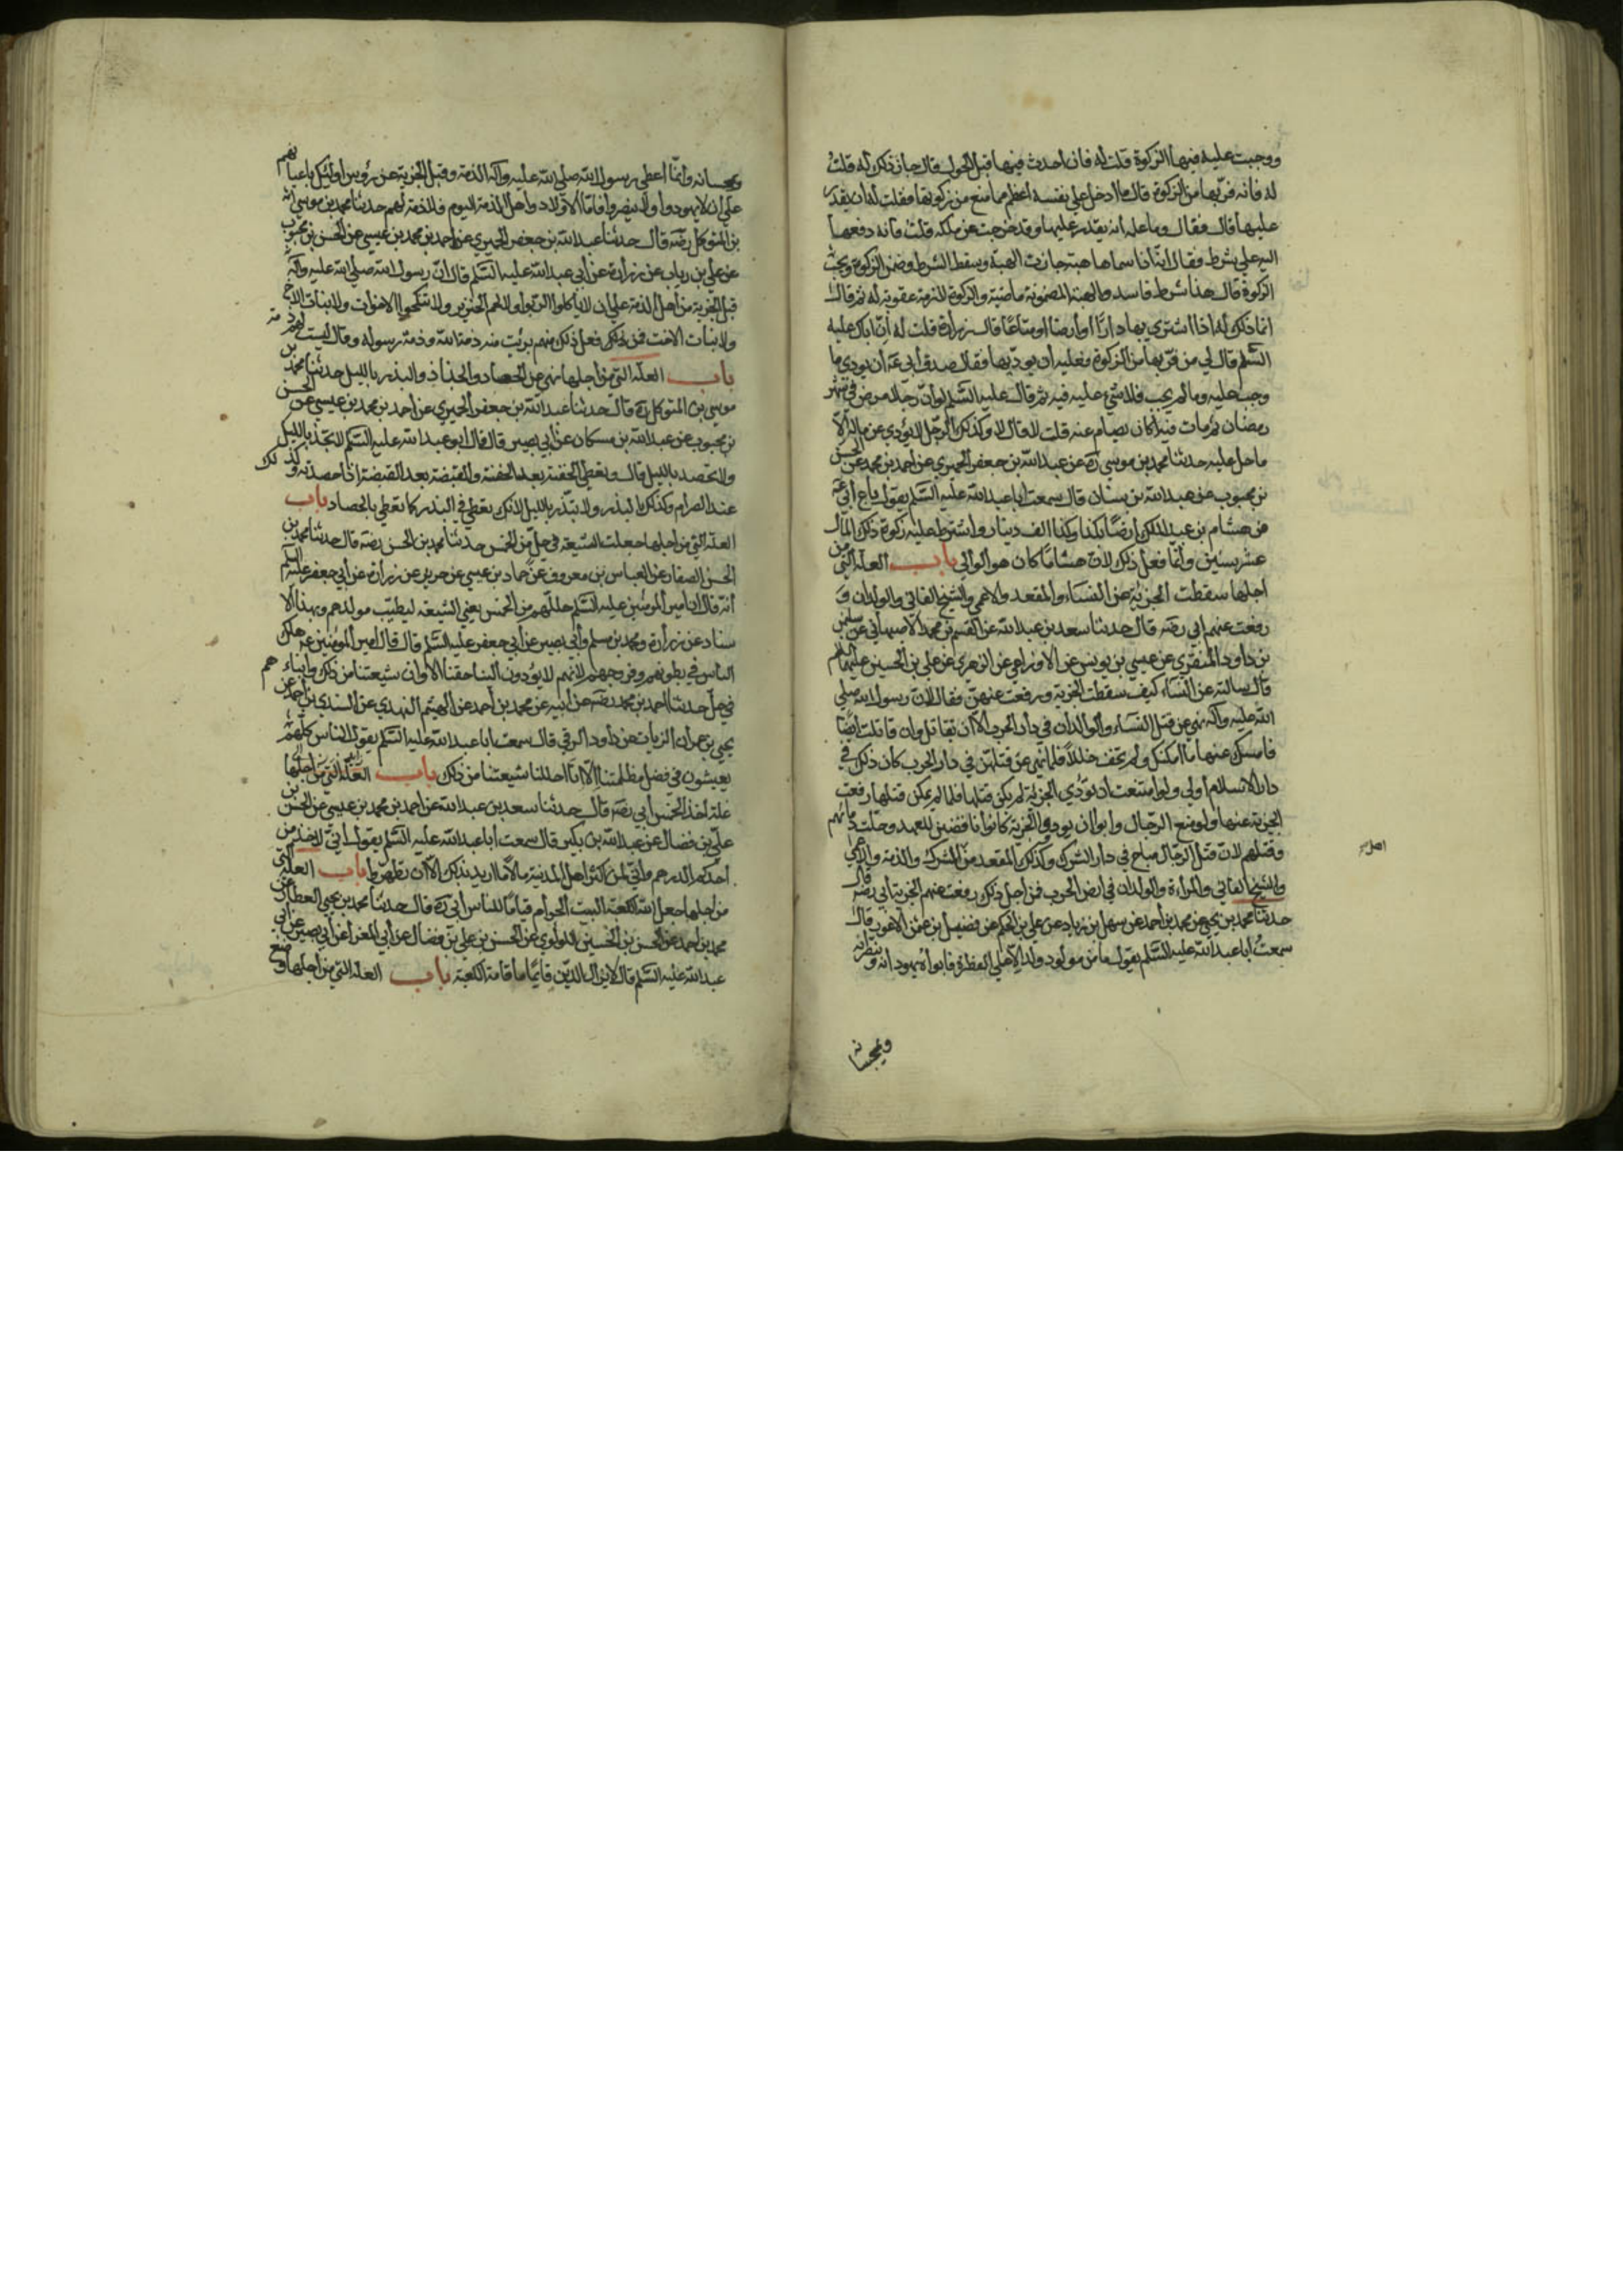 ووجبت عليه فيها الزكوة قلت له فان احدث فيها قبل الحول قال جاز ذلك له قلت
له فانه فرّ بها من الزكوة قال ما ادخل على نفسه اعظم مما منع من زكوتها فقلت له انه يقدر
عليها قال فقال وما علمه انه يقدر عليها وقد خرجت عن ملكه قلت فانه دفعها
اليه على شرط فقال انه اذا سماها هبة جازت الهبة وسقط الشرط وضمن الزكوة
الزكوة قال هذا شرط فاسد والهبة المضمونة ماضية والزكوة لازمة عقوبة له ثم قال
انما ذلك له اذا اشترى بها دارًا او ارضا او متاعًا قال زرارة قلت له انّ اباك عليه
السّلم قال لي من فرّ بها من الزكوة فعليه ان يودّيها فقال صدق ابي عه ان يودي ما
وجب عليه وما لم يجب فلا شيء عليه فيه ثم قال عليه السّلم لو انّ رجلا مرض في شهر
رمضان ثم مات فيه اكان يصام عنه قلت لا قال وكذلك الرجل لا يؤدي عن ماله الّا
ما حل عليه حدثنا محمد بن موسى ره عن عبد الله بن جعفر الحميري عن احمد بن محمد عن الحسن
بن محبوب عن عبد الله بن سنان قال سمعت ابا عبد الله عليه السّلم يقول باع ابي عه
من هشام بن عبد الملك ارضًا بكذا وكذا الف دينار واشترط عليه زكوة ذلك المال
عشر سنين وانّما فعل ذلك لانّ هشامًا كان هو الوالي باب العلّة التي من
اجلها سقطت الجزية عن النساء والمقعد والاعمى والشيخ الفاني والولدان و
رفعت عنهم ابي رضه قال حدثنا سعد بن عبد الله عن القسم بن محمد الاصبهاني عن سليمن
بن داود المنقري عن عيسى بن يونس عن الاوزاعي عن الزهري عن علي بن الحسين عليهما السلم
قال سالته عن النساء كيف سقطت الجزية ورفعت عنهنّ فقال لانّ رسول الله صلى
الله عليه وآله نهى عن قتل النساء والولدان في دار الحرب الّا ان يقاتل وان قاتلت ايضًا
فامسك عنها ما امكنك ولم تخف خللًا فلما نهى عن قتلهنّ في دار الحرب كان ذلك في
دار الاسلام اولى ولو امتنعت ان تؤدي الجزية لم يكن قتلها فلما لم يمكن قتلها رفعت
الجزية عنها ولو منع الرجال وابوا ان يودوا الجزية كانوا ناقضين للعهد وحلّت دمائهم
وقتلهم لانّ قتل الرجال مباح في دار الشرك وكذلك المقعد من الشرك والذمة والاعمى
والشيخ الفاني والمراءة والولدان في ارض الحرب فمن اجل ذلك رفعت عنهم الجزية ابي رضه قال
حدثنا محمد بن يحيى عن محمد بن احمد عن سهل بن زياد عن علي بن الحكم عن فضيل بن عثمن الاعور قال
سمعت ابا عبد الله عليه السّلم يقول ما من مولود ولد الّا على الفطرة فابواه يهودانه وينصرانه
ويمجسانه
ويمجسانه وانّما اعطى رسول الله صلى الله عليه وآله الذمة وقبل الجزية عن رؤس اولئك باعيانهم
على ان لا يهودوا ولا ينصروا فامّا الاولاد واهل الذمة اليوم فلا ذمة لهم حدثنا محمد بن موسى
بن المتوكل رضه قال حدثنا عبد الله بن جعفر الحميري عن احمد بن محمد بن عيسى عن الحسن بن محبوب
عن علي بن رياب عن زرارة عن ابي عبد الله عليه السّلم قال انّ رسول الله صلى الله عليه وآله
قبل الجزية من اهل الذمة على ان لا ياكلوا الربوا ولا لحم الخنزير ولا تنكحوا الاخوات ولا بنات الاخ
ولا بنات الاخت فمن فعل ذلك منهم برئت منه ذمة الله وذمة رسوله وقال ليست لهم ذمة
باب العلّة التي من اجلها نهى عن الحصاد والجذاذ والبذر بالليل حدثنا محمد بن
موسى بن المتوكل ره قال حدثنا عبد الله بن جعفر الحميري عن احمد بن محمد بن عيسى عن الحسن
بن محبوب عن عبد الله بن مسكان عن ابي بصير قال قال ابو عبد الله عليه السّلم لا تجذ بالليل
ولا تحصد بالليل قال وتعطي الحفنة بعد الحفنة والقبضة بعد القبضة اذا حصدته وكذلك
عند الصرام وكذلك البذر ولا تبذر بالليل لانك تعطي في البذر كما تعطي بالحصاد باب
العلّة التي من اجلها جعلت الشيعة في حلّ من الخمس حدثنا محمد بن الحسن رضه قال حدثنا محمد بن
الحسن الصفار عن العباس بن معروف عن حماد بن عيسى عن حريز عن زرارة عن ابي جعفر عليه السّلم
انه قال ان امير المومنين عليه السّلم حللهم من الخمس يعني الشيعة ليطيب مولدهم وبهذا الا
سناد عن زرارة ومحمد بن مسلم وابي بصير عن ابي جعفر عليه السّلم قال قال امير المومنين عه هلك
الناس في بطونهم وفروجهم لانهم لا يؤدون الينا حقنا الا وان شيعتنا من ذلك وابناءهم
في حلّ حدثنا احمد بن محمد رضه عن ابيه عن محمد بن احمد عن الهيثم النهدي عن السندي بن احمد عن
يحيى بن عمران الزيات عن داود الرقي قال سمعت ابا عبد الله عليه السّلم يقول الناس كلّهم
يعيشون في فضل مظلمتنا الّا انّا احللنا شيعتنا من ذلك باب العلّة التي من اجلها
علة اخذ الخمس ابي رضه قال حدثنا سعد بن عبد الله عن احمد بن محمد بن عيسى عن الحسن بن
علي بن فضال عن عبد الله بن بكير قال سمعت ابا عبد الله عليه السّلم يقول انّي لاخذ من
احدكم الدرهم وانّي لمن اكثر اهل المدينة مالًا ما اريد بذلك الّا ان تطهروا باب العلّة التي
من اجلها جعل الله الكعبة البيت الحرام قيامًا للناس ابي ره قال حدثنا محمد بن يحيى العطار عن
محمد بن احمد عن الحسن بن الحسين اللؤلؤي عن الحسن بن علي بن فضال عن ابي المغرا عن ابي بصير عن ابي
عبد الله عليه السّلم قال لا يزال الدين قائمًا ما قامت الكعبة باب العلّة التي من اجلها وضع